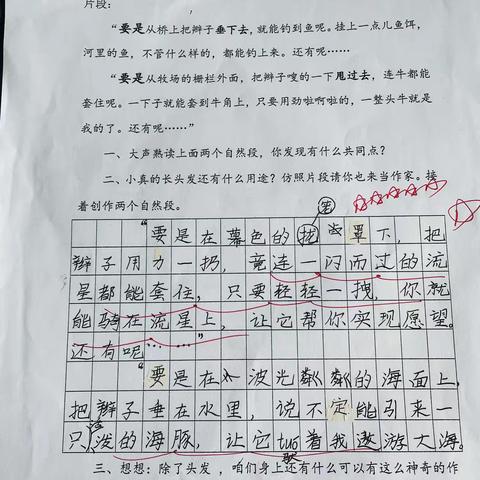 片段：
“要是从桥上把辫子垂下去，就能钓到鱼呢。挂上一点儿鱼饵，
河里的鱼，不管什么样的，都能钓上来。还有呢……
“要是从牧场的栅栏外面，把辫子嗖的一下甩过去，连牛都能
套住呢。一下子就能套到牛角上，只要用劲啦啊啦的，一整头牛就是
我的了。还有呢……”
一、大声熟读上面两个自然段，你发现有什么共同点？
二、小真的长头发还有什么用途？仿照片段请你也来当作家。接
着创作两个自然段。
“要是在暮色的笼罩下，把
辫子用力一扔，竟连一闪而过的流
星都能套住，只要轻轻一拽，你就
能骑在流星上，让它帮你实现愿望。
还有呢……”
“要是在波光粼粼的海面上，
把辫子垂在水里，说不定能引来一
只活泼的海豚，让它tuó着我遨游大海。
三、想想：除了头发，咱们身上还有什么可以有这么神奇的作